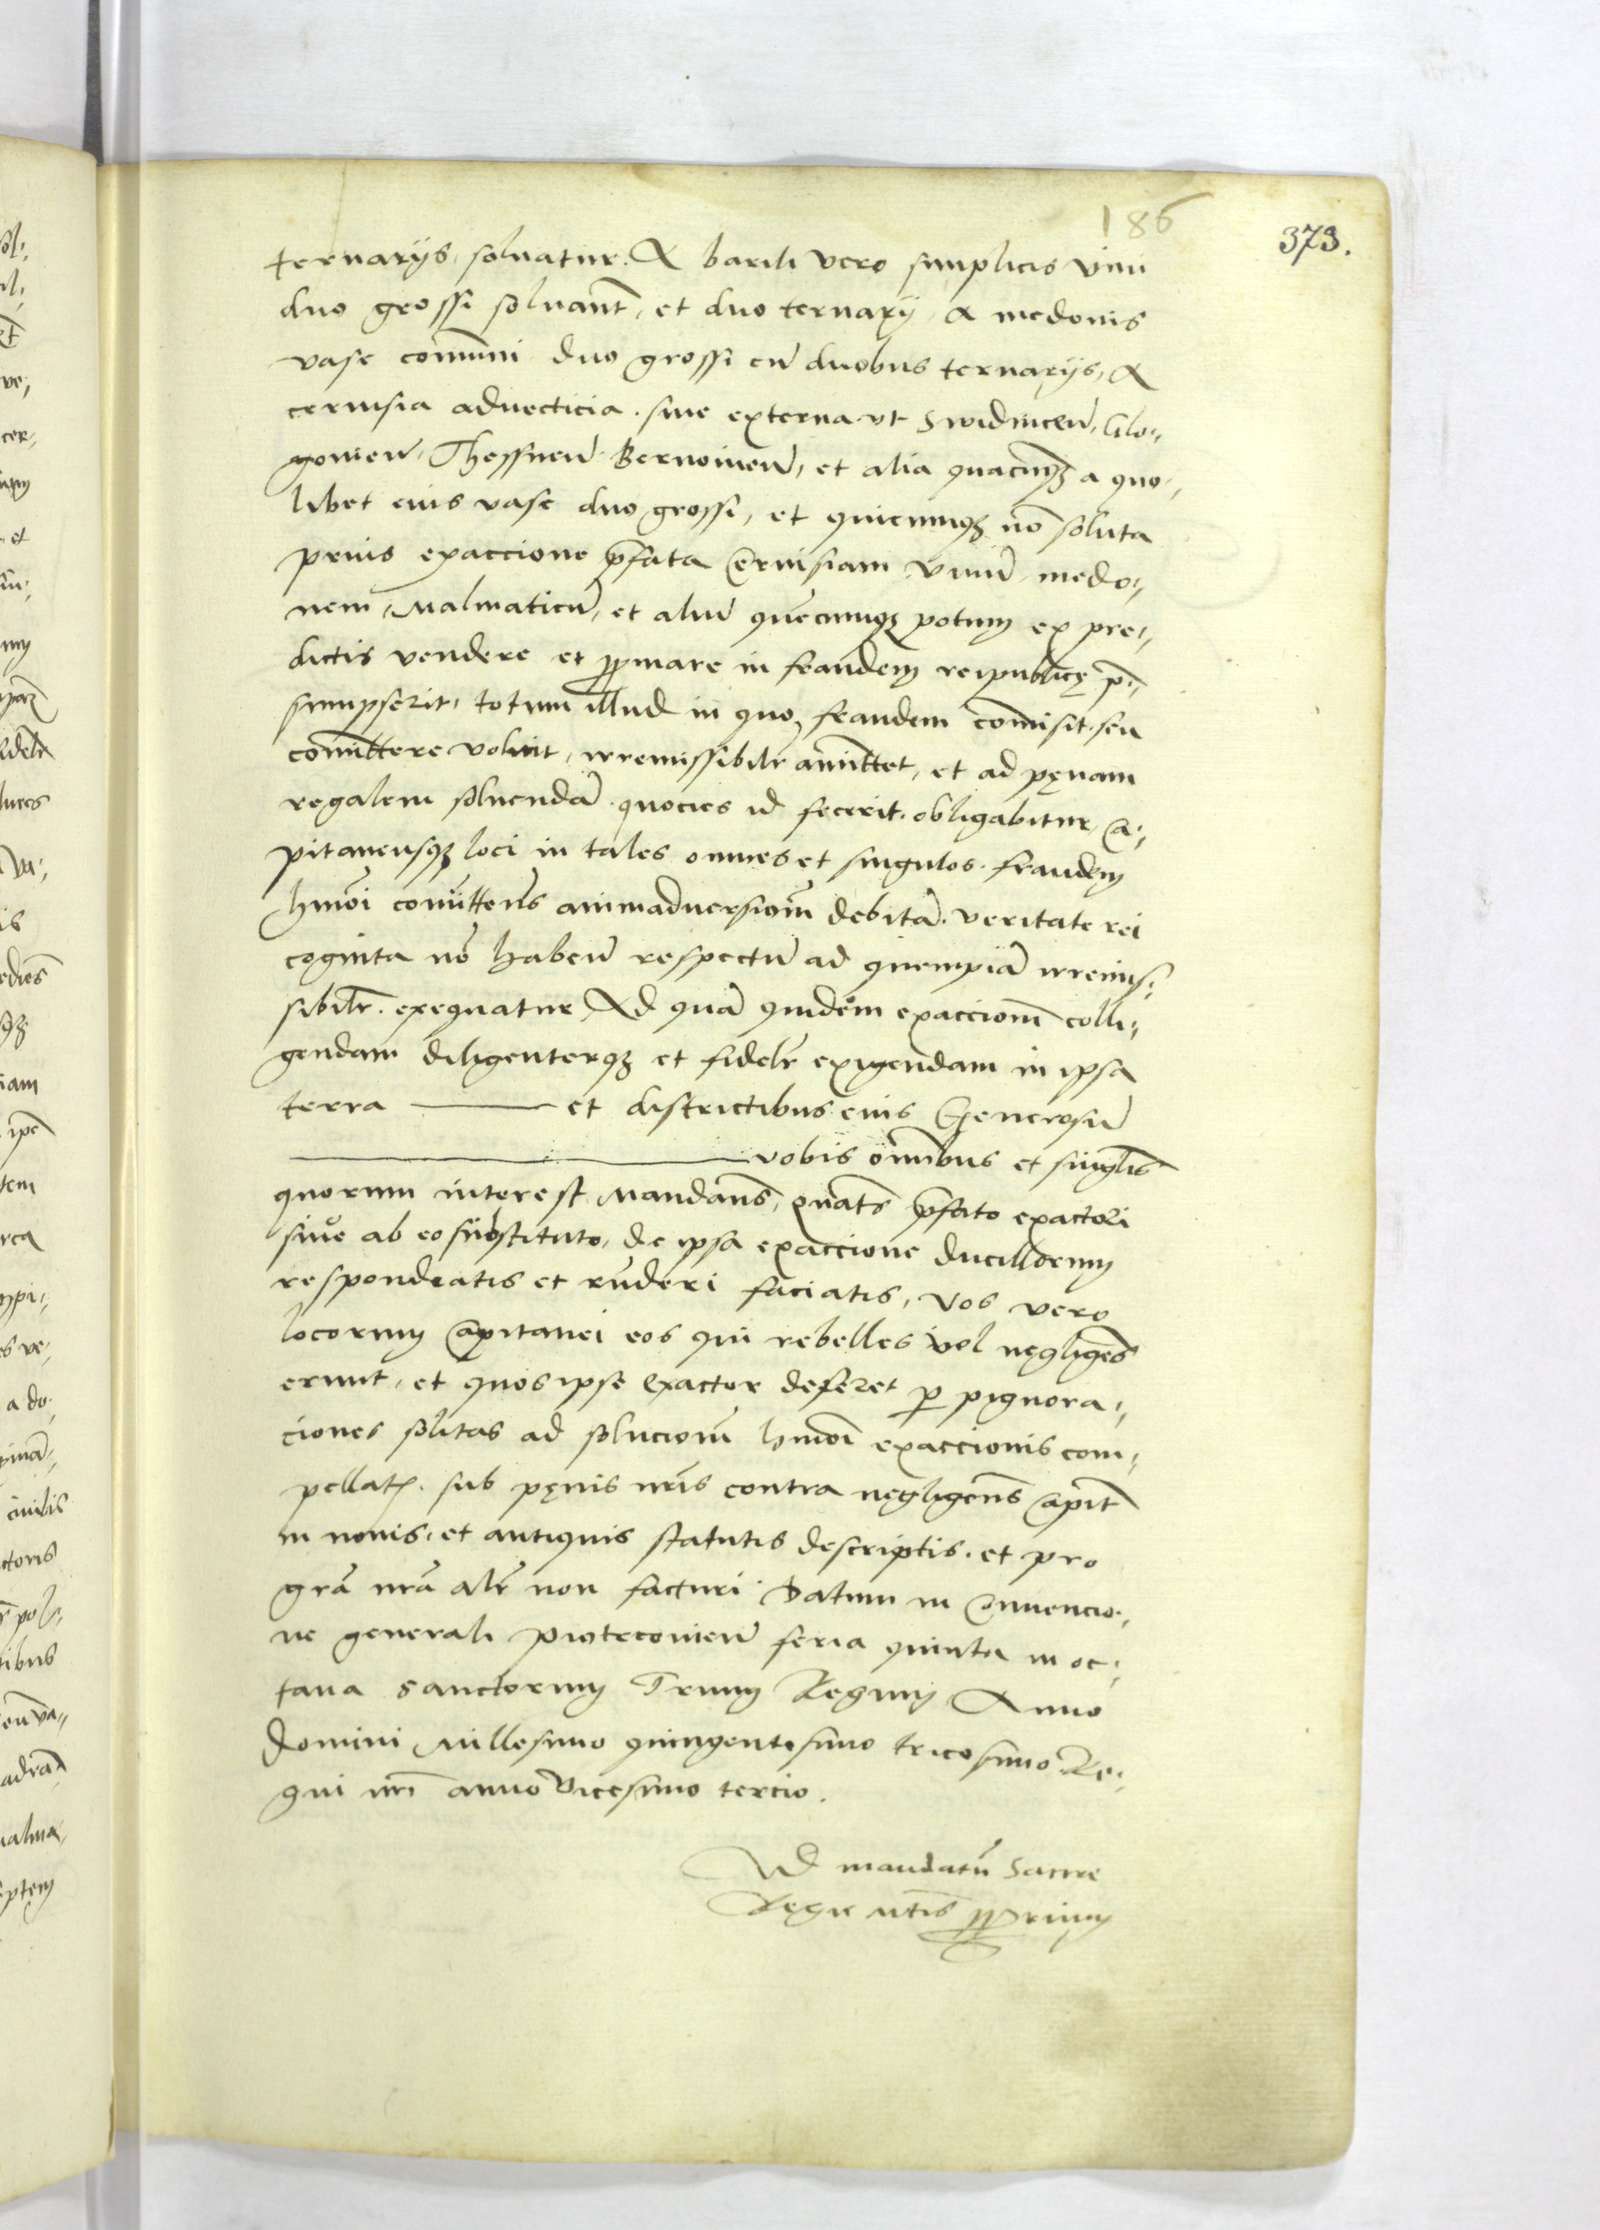 186
373.
ternarijs, soluatur. A barili vero simplicis vini
duo grossi soluant̃, et duo ternarij, A medonis
vase com̃uni duo grossi cũ duobus ternarijs, A
ceruisia aduecticia. siue externa vt Swidnicen̄, Glo-
gouien̄, Thessnen̄ Bernouien̄, et alia quacunqȝ a quo-
libet eius vase duo grossi, et quicunqȝ nõ soluta
prius exaccione p̄fata Ceruisiam, vinũ, medo-
nem, Malmaticũ, et aliũ quẽcunqȝ potum ex pre-
dictis vendere et ꝓpinare in fraudem reipublicę p̄-
sumpserit, totum illud in quo, fraudem com̃isit. seu
com̃ittere voluit, irremissibilr̄ amittet, et ad pęnam
regalem soluendã quocies id fecerit. obligabitur, Ca-
pitaneusqȝ loci in tales omnes et singulos. fraudem
hm̄oi com̃itten̄s animaduersion̄m debitã. veritate rei
cognita nõ haben̄ respectũ ad quempiã irremis-
sibilr̄. exequatur, Ad quã quidem exaccion̄m colli-
gendam diligenterqȝ et fidelr̄ exigendam in ipsa
terra ——— et districtibus eius Generosũ
——— vobis omnibus et singlis̄
quorum interest Mandan̄s, quat̄s p̄fato exactori
siue ab eo substituto, de ipsa exaccione ducillorum
respondeatis et rñderi faciatis, Vos vero
locorum Capitanei eos qui rebelles vel negligen̄s
erunt, et quos ipse exactor deferet ꝑ pignora-
ciones solitas ad solucion̄m hm̄oi exaccionis com-
pellatꝭ. sub pęnis nr̄is contra negligen̄s Capit̄
in nouis, et antiquis statutis descriptis. et pro
gr̃a nr̃a alr̄ non facturi. Datum in Conuencio-
ne generali piotrcouien̄ feria quinta in oc-
taua sanctorum Trium Regum Anno
Domini Millesimo quingentesimo tricesimo Re-
gni nr̄i anno Vicesimo tercio.
Ad mandatũ Sacre
Regie mt̄is ꝓprium